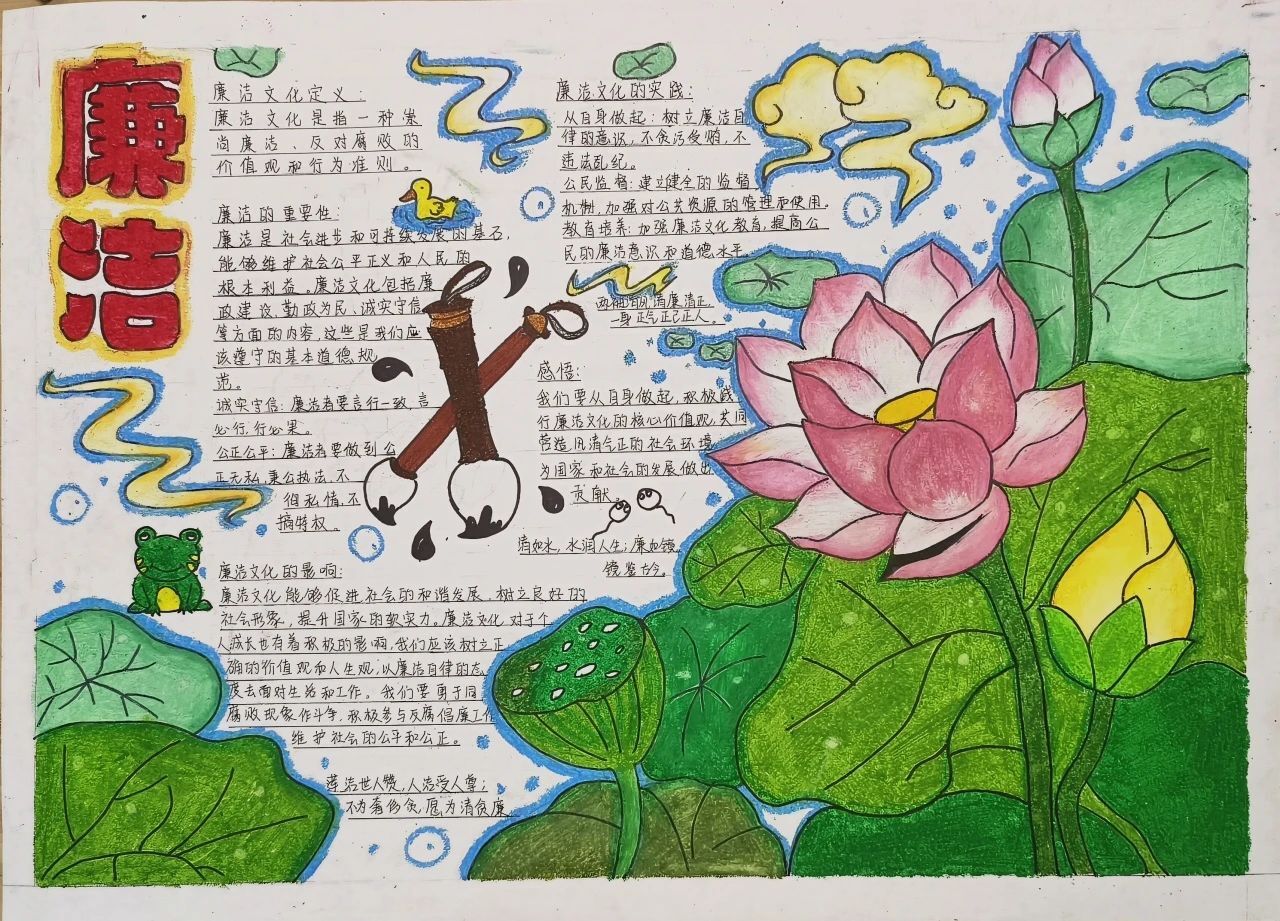 廉洁
廉洁文化定义：
廉洁文化是指一种崇
尚廉洁、反对腐败的
价值观和行为准则。
廉洁的重要性：
廉洁是社会进步和可持续发展的基石，
能够维护社会公平正义和人民的
根本利益。廉洁文化包括廉
政建设、勤政为民、诚实守信
等方面的内容，这些是我们应
该遵守的基本道德规
范。
诚实守信：廉洁者要言行一致，言
必行，行必果。
公正公平：廉洁者要做到公
正无私，秉公执法，不
徇私情，不
搞特权。
廉洁文化的影响：
廉洁文化能够促进社会的和谐发展，树立良好的
社会形象，提升国家的软实力。廉洁文化对于个
人成长也有着积极的影响，我们应该树立正
确的价值观和人生观，以廉洁自律的态
度去面对生活和工作。我们要勇于同
腐败现象作斗争，积极参与反腐倡廉工作
维护社会的公平和公正。
莲洁世人赞，人洁受人尊；
不为奢侈贪，愿为清贫廉
廉洁文化的实践：
从自身做起：树立廉洁自
律的意识，不贪污受贿，不
违法乱纪。
公民监督：建立健全的监督
机制，加强对公共资源的管理和使用。
教育培养：加强廉洁文化教育，提高公
民的廉洁意识和道德水平。
两袖清风消廉清正，
一身正气正己正人。
感悟：
我们要从自身做起，积极践
行廉洁文化的核心价值观，共同
营造风清气正的社会环境，
为国家和社会的发展做出
贡献。
清如水，水润人生；廉如镜，
镜鉴古今。